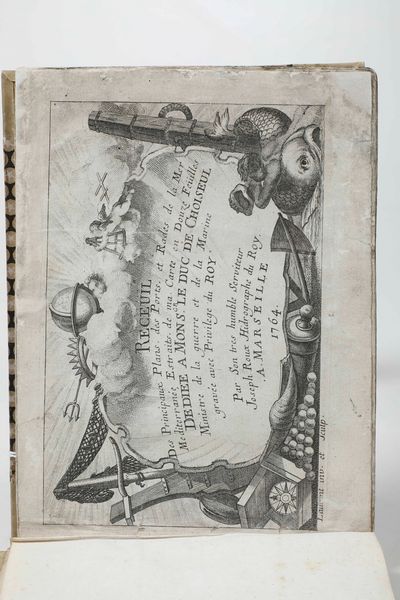 RECEUIL
Des Principaux Plans des Ports, et Rades de la Mer
Mediterranée, Extraits de ma Carte en Douze Feuilles
DEDIÉE A MONS. LE DUC DE CHOISEUL
Ministre de la guerre et de la Marine
gravée avec Privilege du ROY
Par Son tres humble Serviteur
Joseph Roux Hidrographe du Roy.
A MARSEILLE
1764.
Laurent inv. et Sculp